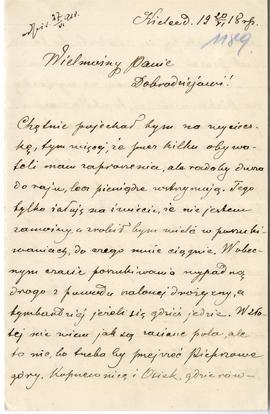 Kielce d. 19 20/VI 18 r.
1189
Wielmożny Panie
Dobrodzieju!
Chętnie pojechał bym na wyciecz-
kę, tym więcej, że przez kilku obywa-
teli mam zaproszenia, ale radaby dusza
do raju, lecz pieniądze wstrzymują. Tego
tylko żałuję na świecie, że nie jestem
zamożny, a zrobił bym wiele w poszuki-
waniach, do czego mnie ciągnie. W obec-
nym czasie poszukiwania wypadną
drogo z powodu szalonej drożyzny, a
tymbardziej jeżeli się gdzieś jedzie.
nie wiem jak są zasiane pola, ale
to nic, bo trzeba by przejrzeć Pieprzowe
góry. Koprzywnicę i Osiek, gdzie rów-